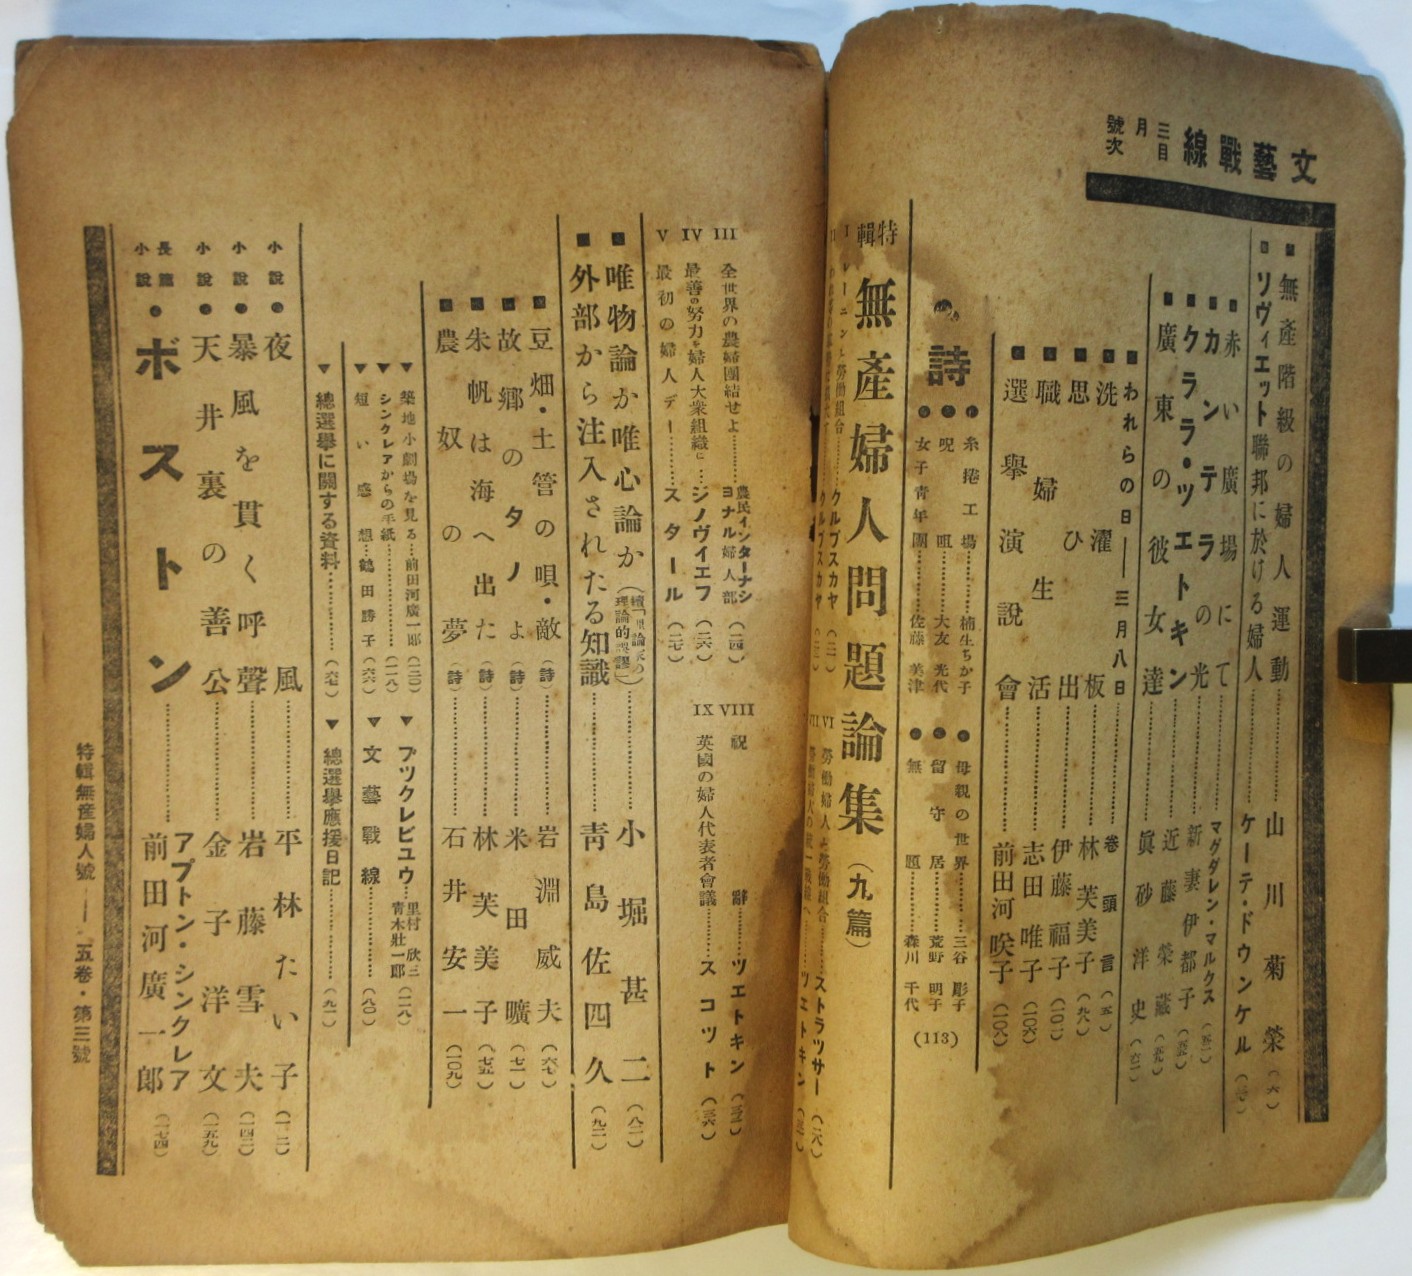 文藝戰線
三月號
目次
無產階級の婦人運動……山川菊榮（六）
ソヴィエット聯邦に於ける婦人……ケーテ・ドウンケル
赤い廣場にて……マグダレン・マルクス
カンテラの光……新妻伊都子
クララ・ツエトキン……近藤榮藏
廣東の彼女達……眞砂洋史
われらの日——三月八日……卷頭言
洗濯板……林芙美子（九八）
思ひ出……伊藤福子（一〇二）
職婦生活……志田唯子（一〇六）
選擧演說會……前田河咲子（一〇八）
詩
糸捲工場……楠生ちか子
呪咀……大友光代
女子青年團……佐藤美津
母親の世界……三谷彫子
留守居……荒野明子
無題……森川千代
(113)
特輯 無產婦人問題論集（九篇）
I レーニンと勞働組合……クルプスカヤ
VI 勞働婦人と勞働組合……ストラッサー（一八）
III 全世界の農婦團結せよ……農民インターナショナル婦人部（一四）
IV 最善の努力を婦人大衆組織に…ジノヴイエフ（二六）
V 最初の婦人デー……スタール（二七）
VIII 祝辭……ツエトキン
IX 英國の婦人代表者會議……スコット（三六）
唯物論か唯心論か……小堀甚二（八二）
外部から注入されたる知識……靑島佐四久（九二）
豆畑・土管の唄・敵（詩）……岩淵威夫（六七）
故鄉のタノよ（詩）……米田曠（七二）
朱帆は海へ出た（詩）……林芙美子（七五）
農奴の夢（詩）……石井安一（一〇九）
築地小劇場を見る…前田河廣一郎
シンクレアからの手紙……（一一八）
短い感想…鶴田勝子（六六）
ブックレビユウ…里村欣三 靑木壯一郎（一二八）
文藝戰線……（八〇）
總選擧に關する資料……（六七）
總選擧應援日記……（九一）
小說 夜風……平林たい子
小說 暴風を貫く呼聲……岩藤雪夫（一四二）
小說 天井裏の善公……金子洋文（一五九）
長篇小說 ボストン……アプトン・シンクレア 前田河廣一郎（一七四）
特輯無產婦人號——五卷・第三號